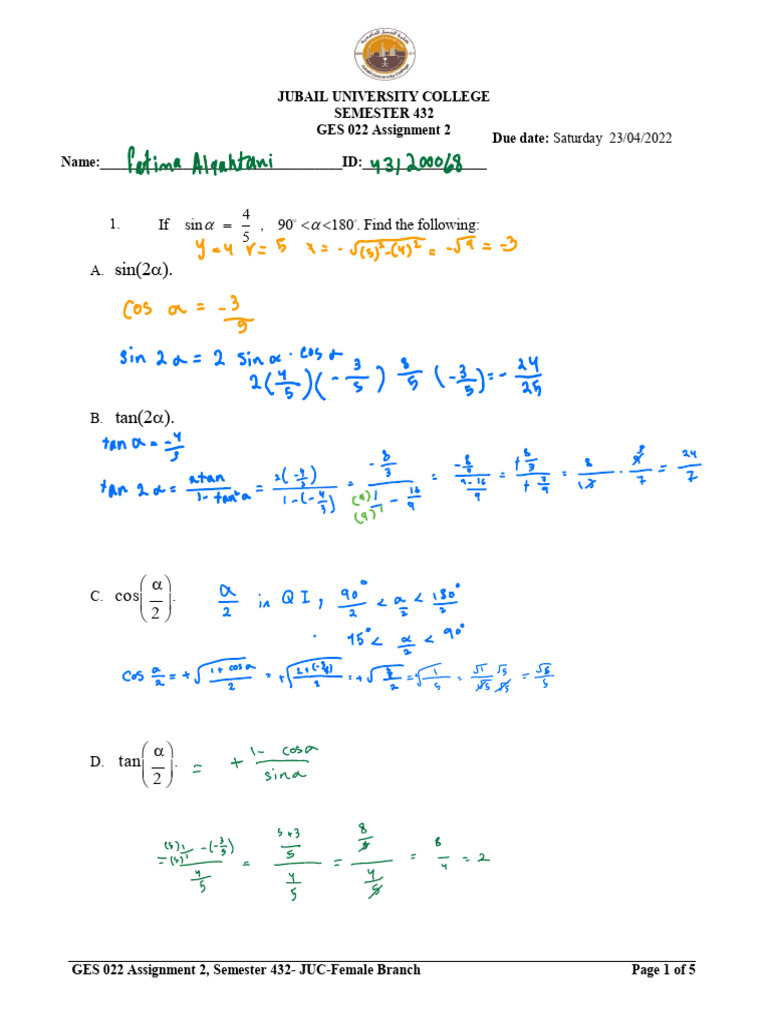 JUBAIL UNIVERSITY COLLEGE
SEMESTER 432
GES 022 Assignment 2
Due date: Saturday 23/04/2022
Name: Fatima Alqahtani ID: 431200068
1. If sinα = 4/5 , 90° <α<180°. Find the following:
y = 4 r = 5 x = -√((5)²-(4)²) = -√9 = -3
A. sin(2α).
cos α = -3/5
sin 2α = 2 sin α · cos α
2(4/5)(-3/5) 8/5 (-3/5) = -24/25
B. tan(2α).
tan α = -4/3
tan 2α = 2tan/1-tan²α = 2(-4/3)/1-(-4/3) = -8/3/(9)1/(9)1 - 16/9 = -8/9/9-16/9 = +8/3/+7/9 = 8/13 · 9/7 = 24/7
C. cos(α/2). α/2 in QI, 90°/2 < α/2 < 180°/2
45° < α/2 < 90°
cos α/2 = +√(1+cos α/2) = +√(/2) = +√(/2) = √1/5 = √1/√5 √5/√5 = √5/5
D. tan(α/2). = + 1- cosα/sinα
= (5)1/(5)1 -(-3/5)/4/5 = 5+3/5/4/5 = 8/5/4/5 = 8/4 = 2
GES 022 Assignment 2, Semester 432- JUC-Female Branch Page 1 of 5